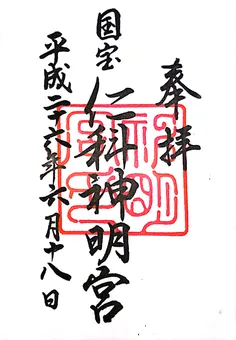 奉拝
国宝
仁科神明宮
平成二十六年六月十八日